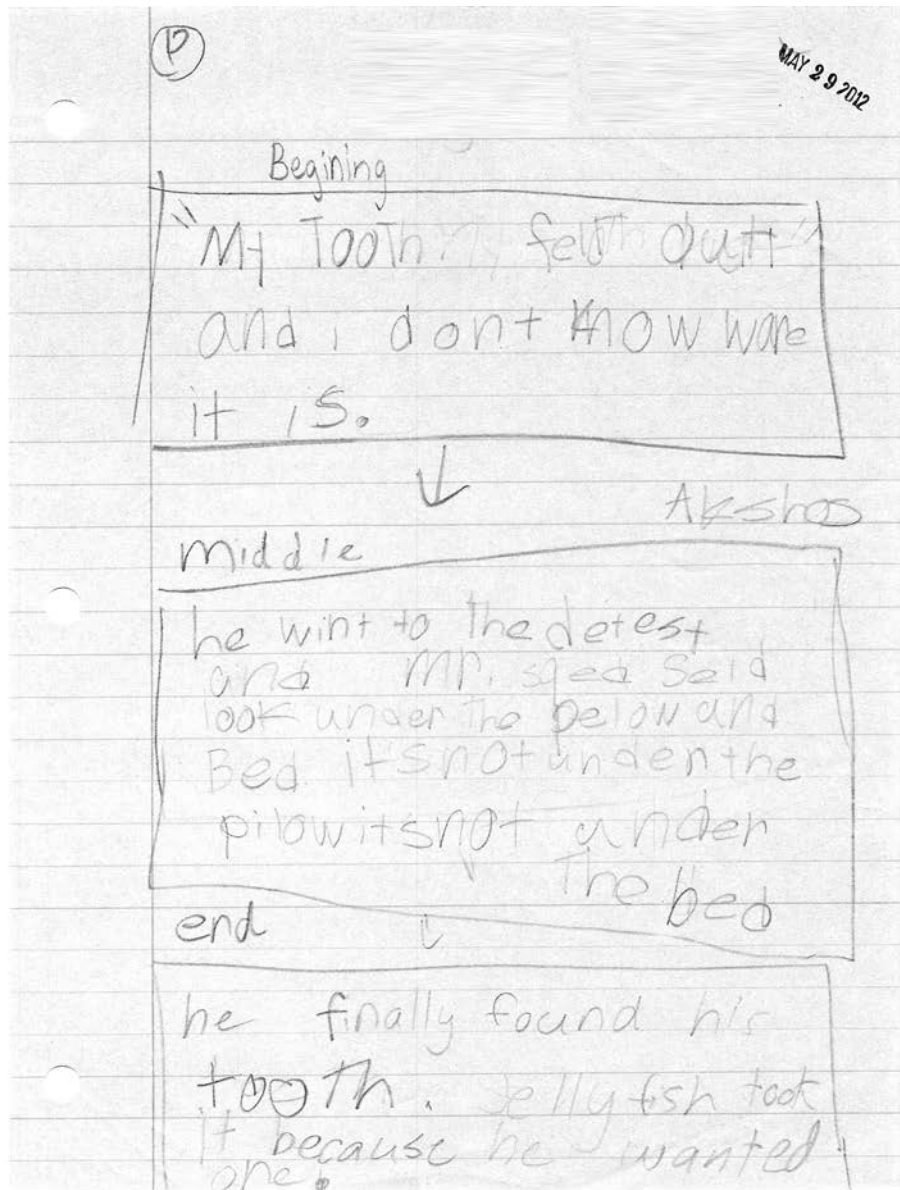 P
MAY 29 2012
Begining
"My Tooth fell out"
and i dont know ware
it is.
middle
he wint to the detest
and Mr. sqed Seld
look under The pelow and
Bed. it's not under the
pilow its not under
The bed
end
he finally found his
tooth. Jellyfish took
It because he wanted
one.